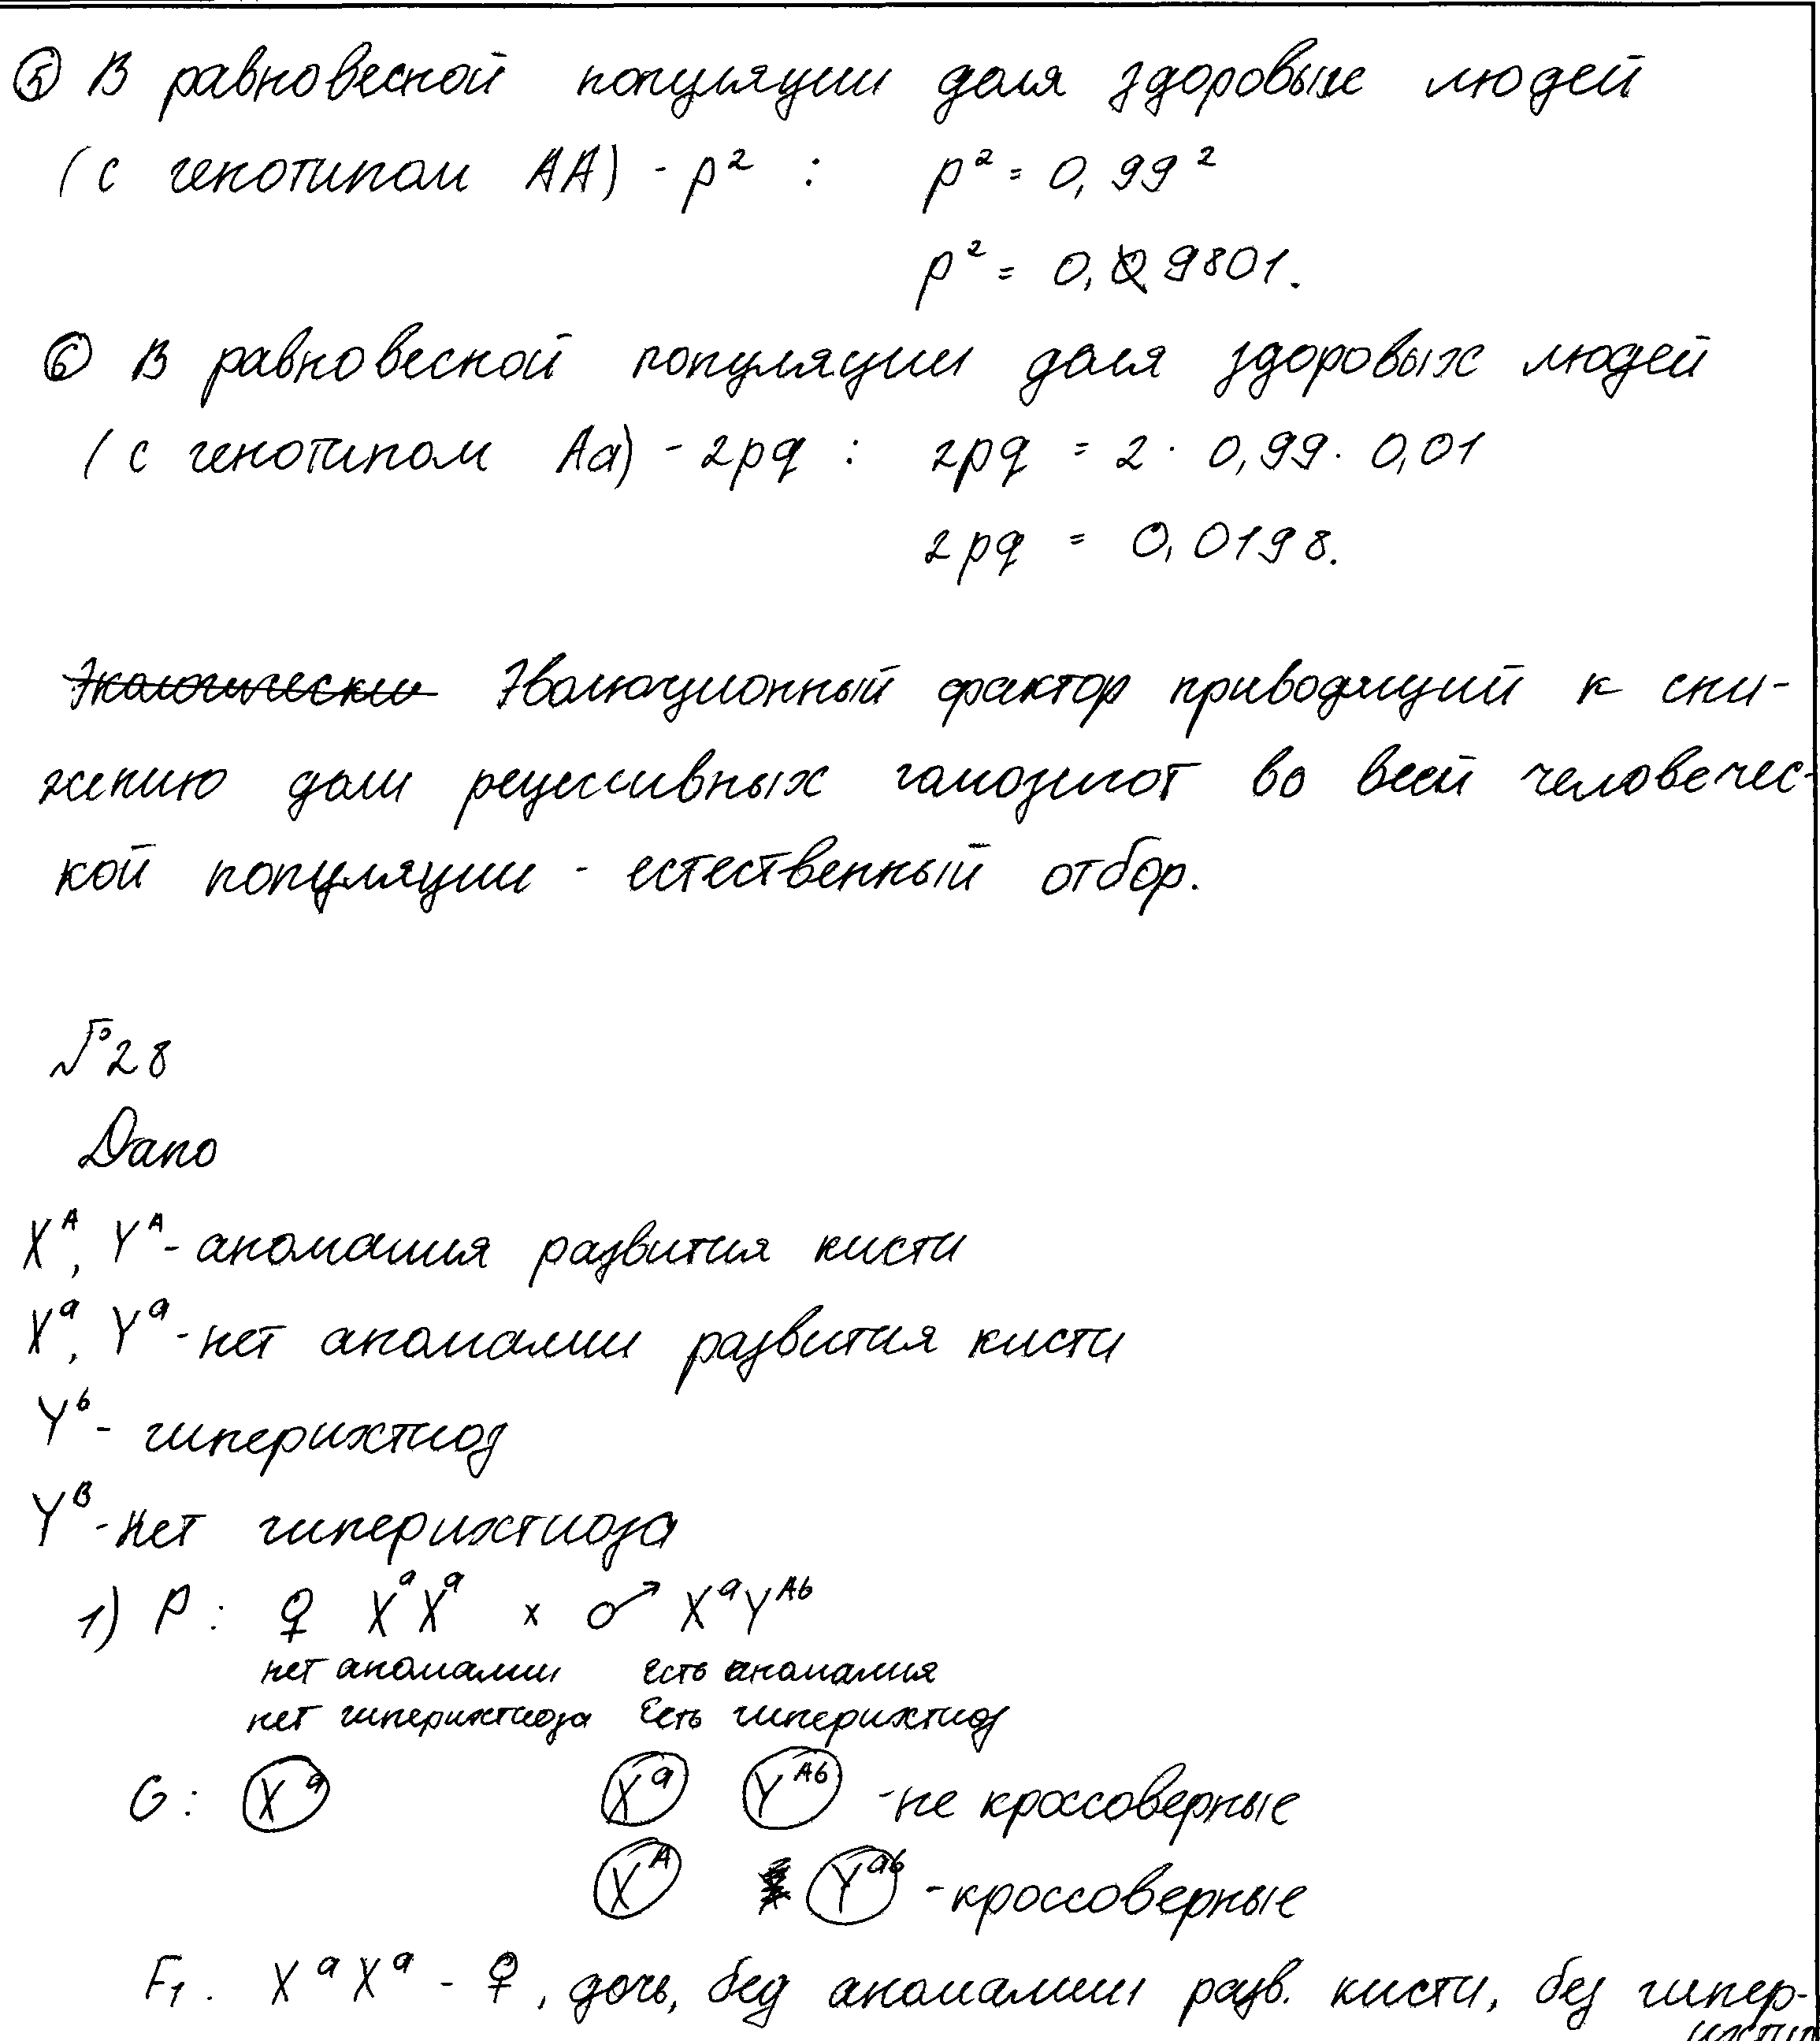 ⑤ В равновесной популяции доля здоровых людей
(с генотипом АА) - p² : p² = 0,99²
p² = 0,9801.
⑥ В равновесной популяции доля здоровых людей
(с генотипом Аа) - 2pq : 2pq = 2 · 0,99 · 0,01
2pq = 0,0198.
Экологически Эволюционный фактор приводящий к сни-
жению доли рецессивных гомозигот во всей человечес-
кой популяции - естественный отбор.
№28
Дано
Xᴬ, Yᴬ - аномалия развития кисти
Xᵃ, Yᵃ - нет аномалии развития кисти
Yᵇ - гиперихтиоз
Yᴮ - нет гиперихтиоза
1) P: ♀ XᵃXᵃ x ♂ XᵃYᴬᵇ
нет аномалии есть аномалия
нет гиперихтиоза Есть гиперихтиоз
G: Xᵃ Xᵃ Yᴬᵇ - не кроссоверные
Xᴬ Yᵃᵇ - кроссоверные
F₁. XᵃXᵃ - ♀, дочь, без аномалии разв. кисти, без гипер-